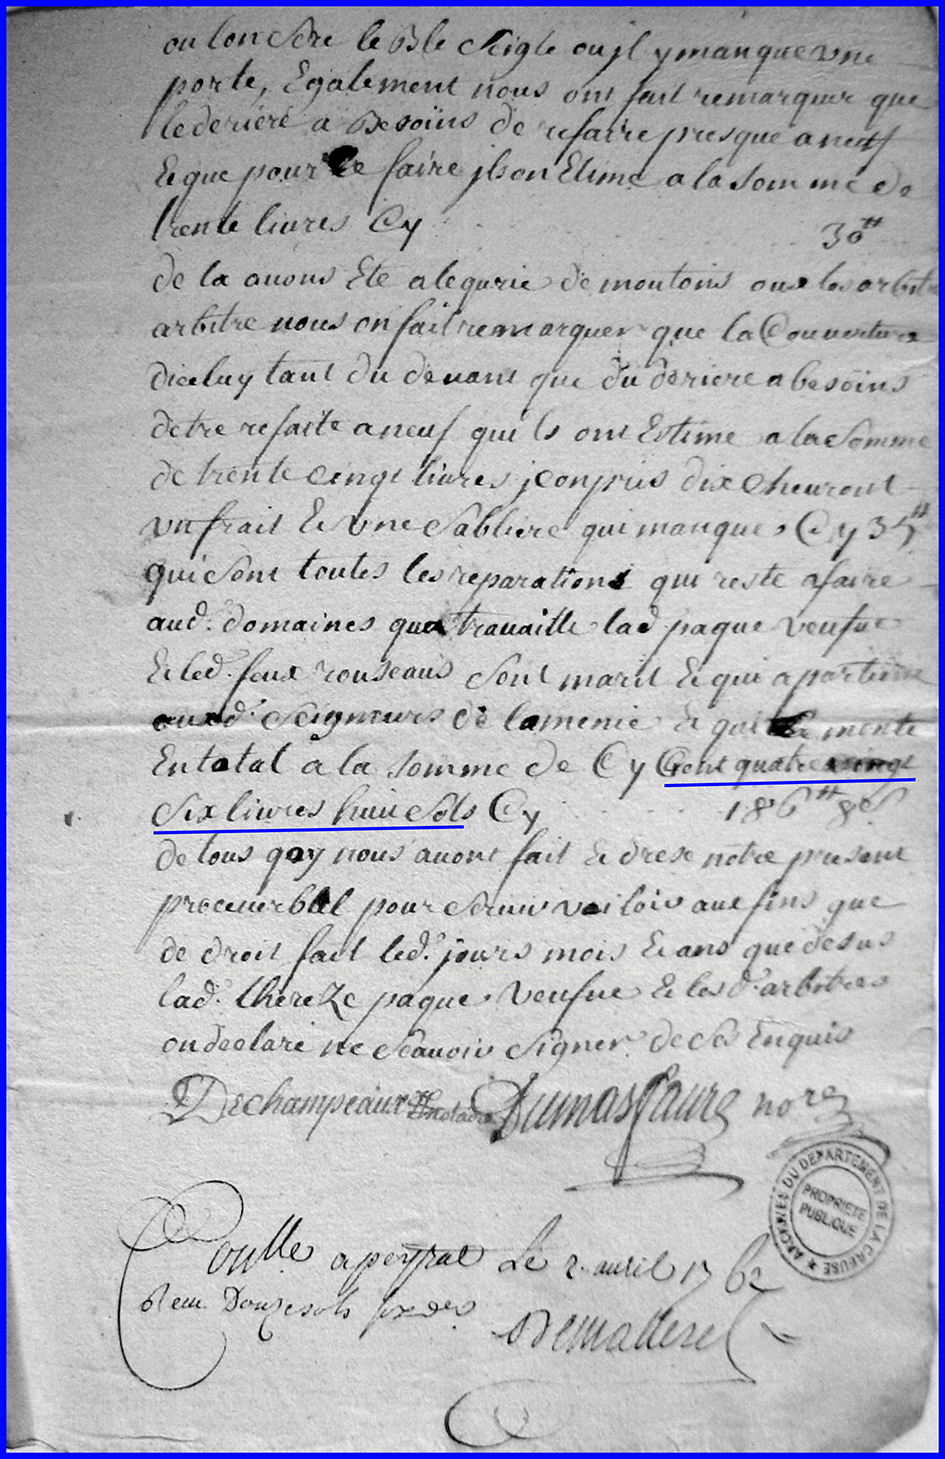 ou lon sere le Ble Seigle ou jl y manque vne
porte, Egalement nous ont fait remarquer que
le deriere a Besoins de refaire presque a neuf
Et que pour le faire jls on Etime a la somme de
trente livres Cy 30#
de la auons Ete a lequrie de moutons ou les arbit
arbitre nous on fait remarquer que la Couverture
diceluy tant du deuant que du deriere a besoins
detre refaite a neuf quils ont Estime a la Somme
de trente cinqt liures j conpris dix cheuront
vn frait Et vne Sabliere qui manque, Cy 35#
qui sont toutes les reparations qui reste a faire
aud. domaines qua trauaille lad paque veufue
Et led. feux rouseaux sont marit Et qui apartiene
auxd. Seigneurs de lamenie Et qui monte
En total a la somme de Cy Cent quatre vingt
Six liures huit sols Cy 186# 8s
de tous qoy nous auont fait Et drese notre present
proceuerbal pour seruir valoir aux fins que
de droit fait led. jours mois Et ans que desus
lad. thereze paque veufue Et les d. arbitres
on declare ne scauoir signer de ce Enquis
Dechampeaux notaire Dumasfaure nore
ARCHIVES DU DEPARTEMENT DE LA CREUSE
PROPRIETE
PUBLIQUE
Conttle a peyrat Le 2 auril 1762
Reçu Douze sols six des
Demalleret